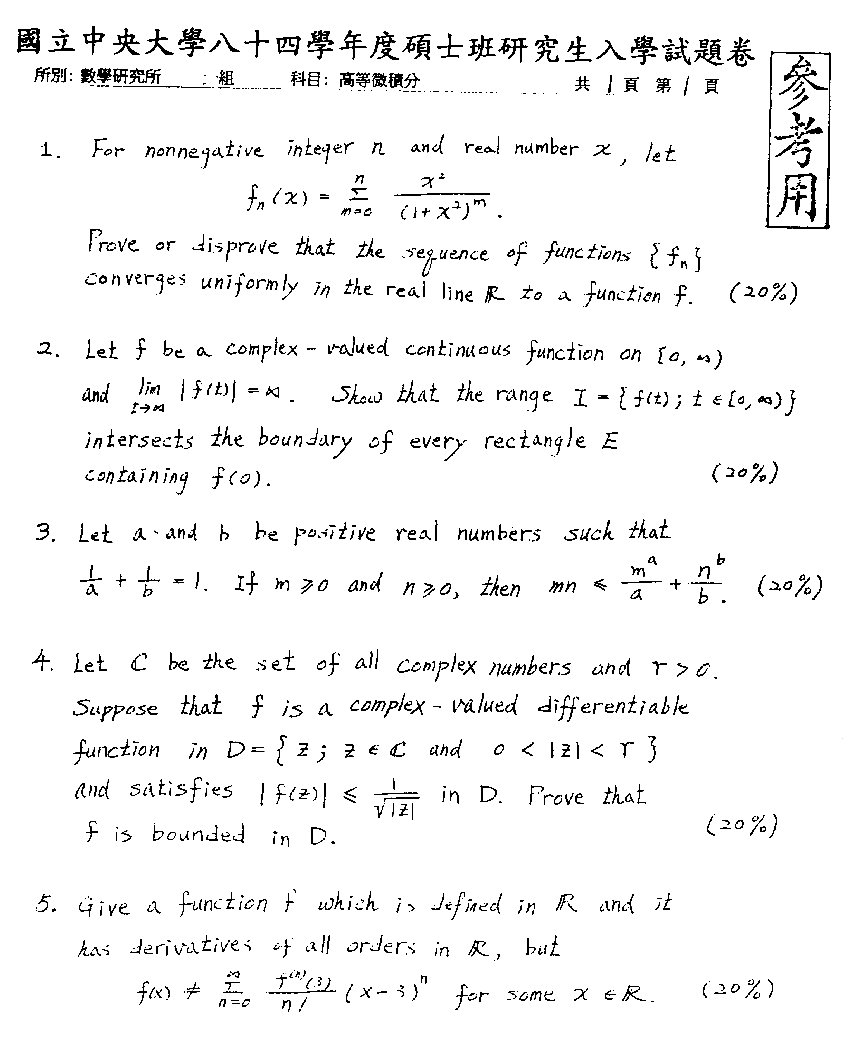 國立中央大學八十四學年度碩士班研究生入學試題卷
所別: 數學研究所 : 組 科目: 高等微積分 共 1 頁 第 1 頁
參考用
1. For nonnegative integer n and real number x, let
fₙ(x) = Σ_{m=0}^{n} x² / (1+x²)^m .
Prove or disprove that the sequence of functions {fₙ}
converges uniformly in the real line ℝ to a function f. (20%)
2. Let f be a complex-valued continuous function on [0, ∞)
and lim_{t→∞} |f(t)| = ∞. Show that the range I = {f(t); t ∈ [0, ∞)}
intersects the boundary of every rectangle E
containing f(0). (20%)
3. Let a and b be positive real numbers such that
1/a + 1/b = 1. If m ≥ 0 and n ≥ 0, then mn ≤ m^a/a + n^b/b. (20%)
4. Let ℂ be the set of all complex numbers and r > 0.
Suppose that f is a complex-valued differentiable
function in D = {z; z ∈ ℂ and 0 < |z| < r}
and satisfies |f(z)| ≤ 1/√|z| in D. Prove that
f is bounded in D. (20%)
5. Give a function f which is defined in ℝ and it
has derivatives of all orders in ℝ, but
f(x) ≠ Σ_{n=0}^{∞} f^(n)(3)/n! (x-3)^n for some x ∈ ℝ. (20%)